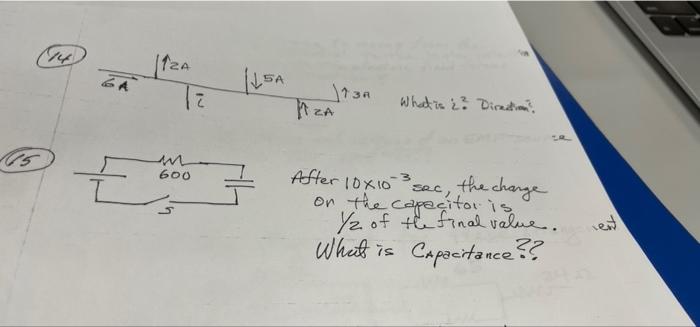 14
↑2A
6A
i
↓5A
↑2A
↑3A
What is i? Direction?
15
600
S
After 10×10⁻³ sec, the charge
on the capacitor is
1/2 of the final value.
What is Capacitance??